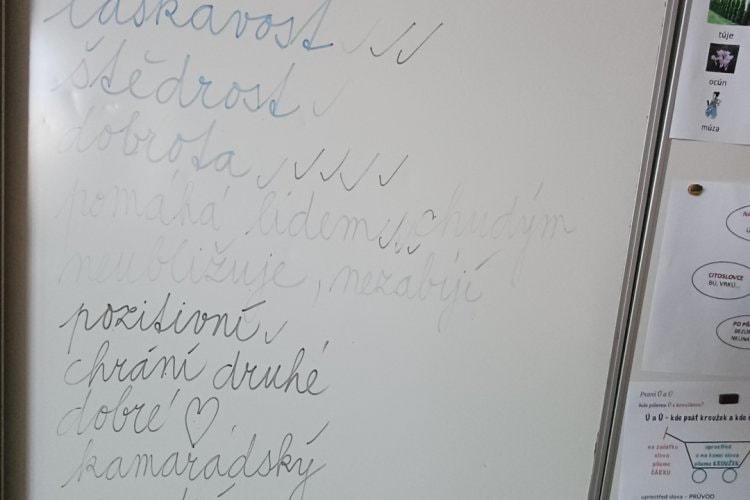 laskavost
štědrost
dobrota
pomáhá lidem, chudým
neubližuje, nezabíjí
pozitivní
chrání druhé
dobré ♡
kamarádský
túje
ocún
múza
CITOSLOVCE
BÚ, VRKÚ...
PO PŘ
Psaní Ú a Ů
kde píšeme Ú s kroužkem?
Ú a Ů - kde psát kroužek a kde
na začátku
slova
píšeme
ČÁRKU
uprostřed
a na konci slova
píšeme KROUŽEK
uprostřed slov - PRŮVOD